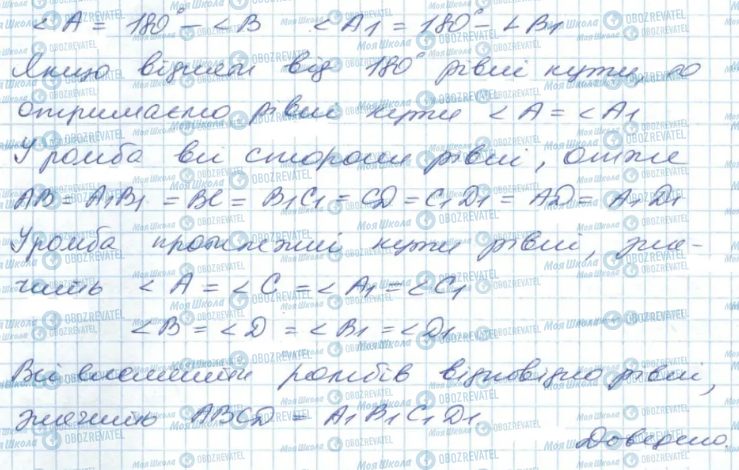 ∠A = 180° - ∠B ∠A1 = 180° - ∠B1
Якщо відняти від 180° рівні кути, то
отримаємо рівні кути ∠A = ∠A1
У ромба всі сторони рівні, отже
AB = A1B1 = BC = B1C1 = CD = C1D1 = AD = A1D1
У ромба протилежні кути рівні, зна-
чить ∠A = ∠C = ∠A1 = ∠C1
∠B = ∠D = ∠B1 = ∠D1
Всі елементи ромбів відповідно рівні,
значить ABCD = A1B1C1D1
Доведено.